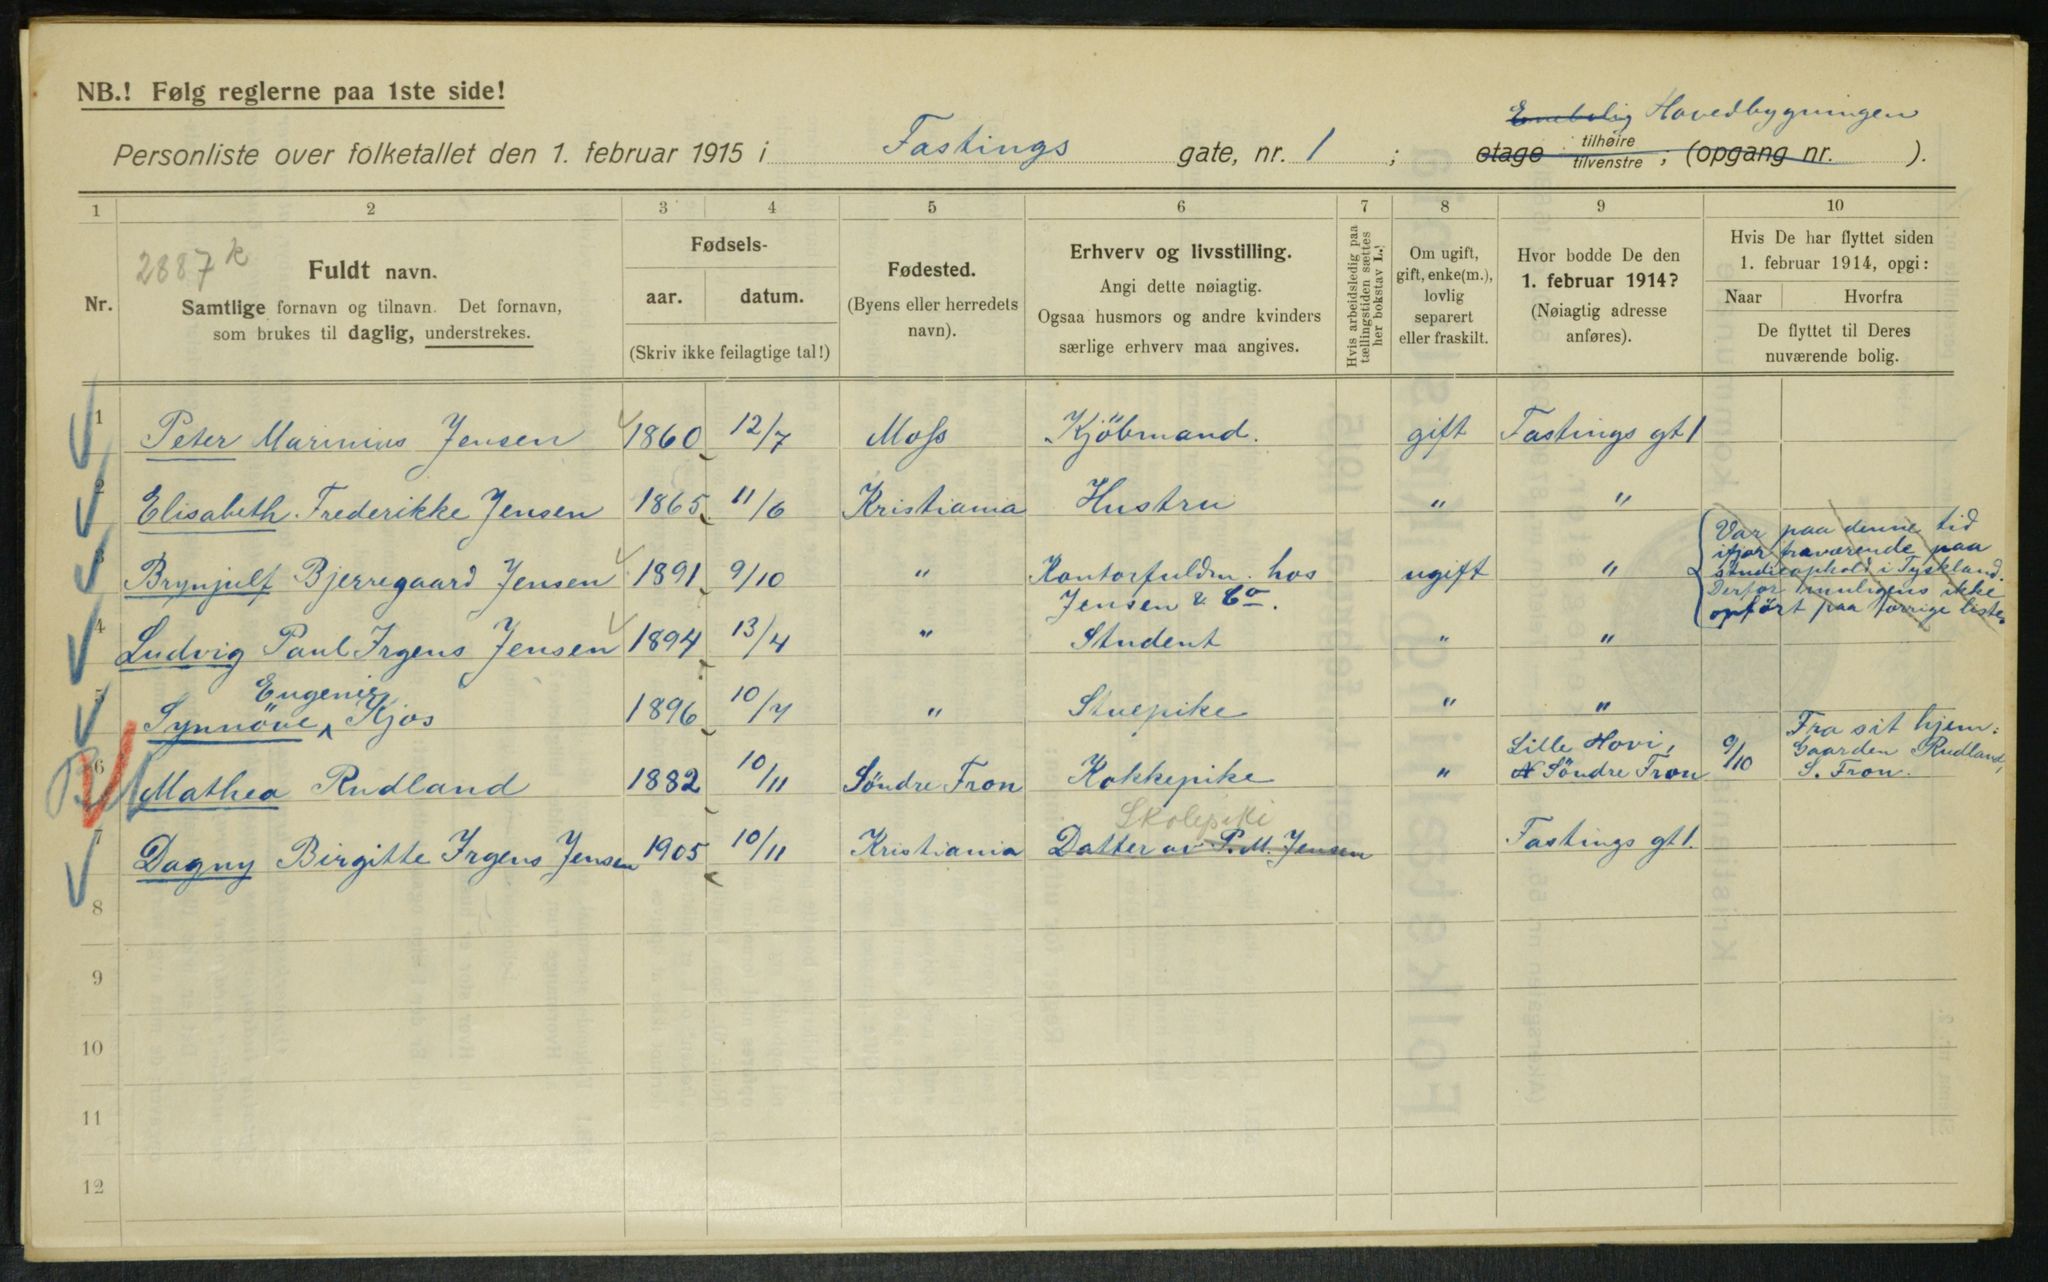 NB.! Følg reglerne paa 1ste side!
Enebolig Hovedbygningen
Personliste over folketallet den 1. februar 1915 i Fastings gate, nr. 1 ; etage tilhøire tilvenstre ; (opgang nr. ).
1 2 3 4 5 6 7 8 9 10
2887 k
Nr.
Fuldt navn.
Samtlige fornavn og tilnavn. Det fornavn,
som brukes til daglig, understrekes.
Fødsels-
aar. datum.
(Skriv ikke feilagtige tal!)
Fødested.
(Byens eller herredets
navn).
Erhverv og livsstilling.
Angi dette nøiagtig.
Ogsaa husmors og andre kvinders
særlige erhverv maa angives.
Hvis arbeidsledig paa
tællingstiden sættes
her bokstav L.
Om ugift,
gift, enke(m.),
lovlig
separert
eller fraskilt.
Hvor bodde De den
1. februar 1914?
(Nøiagtig adresse
anføres).
Hvis De har flyttet siden
1. februar 1914, opgi:
Naar Hvorfra
De flyttet til Deres
nuværende bolig.
1 Peter Marinius Jensen 1860 12/7 Moss Kjöbmand. gift Fastings gt 1
2 Elisabeth Frederikke Jensen 1865 11/6 Kristiania Hustru " "
3 Brynjulf Bjerregaard Jensen 1891 9/10 " Kontorfuldm. hos ugift "
Jensen & Co.
Var paa denne tid
ifjor fraværende paa
studieophold i Tyskland.
Derfor muligens ikke
opført paa forrige liste.
4 Ludvig Paul Irgens Jensen 1894 13/4 " Student " "
Eugenie
5 Synnöve Kjos 1896 10/7 " Stuepike " "
6 Mathea Rudland 1882 10/11 Söndre Fron Kokkepike " Lille Hovi,
N Söndre Fron 9/10 Fra sit hjem:
Gaarden Rudland,
S. Fron.
Skolepike
7 Dagny Birgitte Irgens Jensen 1905 10/11 Kristiania Datter av P. M. Jensen Fastings gt 1.
8
9
10
11
12